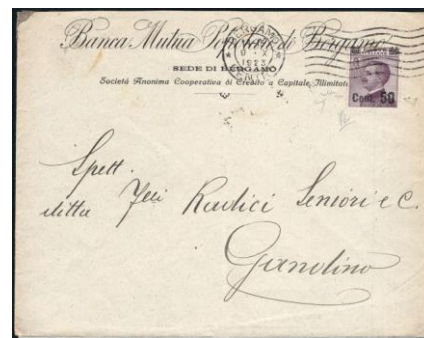 Banca Mutua Popolare di Bergamo
BERGAMO
1923
SEDE DI BERGAMO
Società Anonima Cooperativa di Credito a Capitale Illimitato
Cent. 50
Spett.
ditta Flli Radici Seniori e C.
Gandino